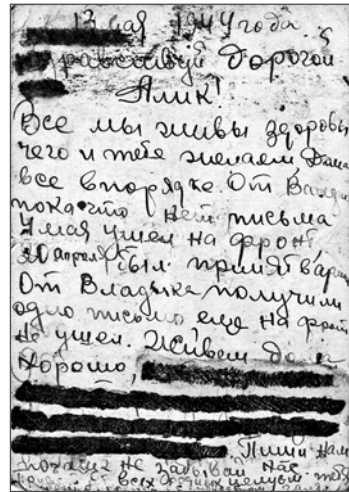 13 мая 1944 года.
Здравствуй дорогой
Алик!
Все мы живы здоровы
чего и тебе желаем Дома
все впорядке. От
пока что нет письма
мая ушел на фронт
30 апреля был принят в
От Владика получили
одно письмо еще на фронт
не ушел. Живем дома
хорошо,
Пиши нам
почаще не забывай нас
всех целуем тебя